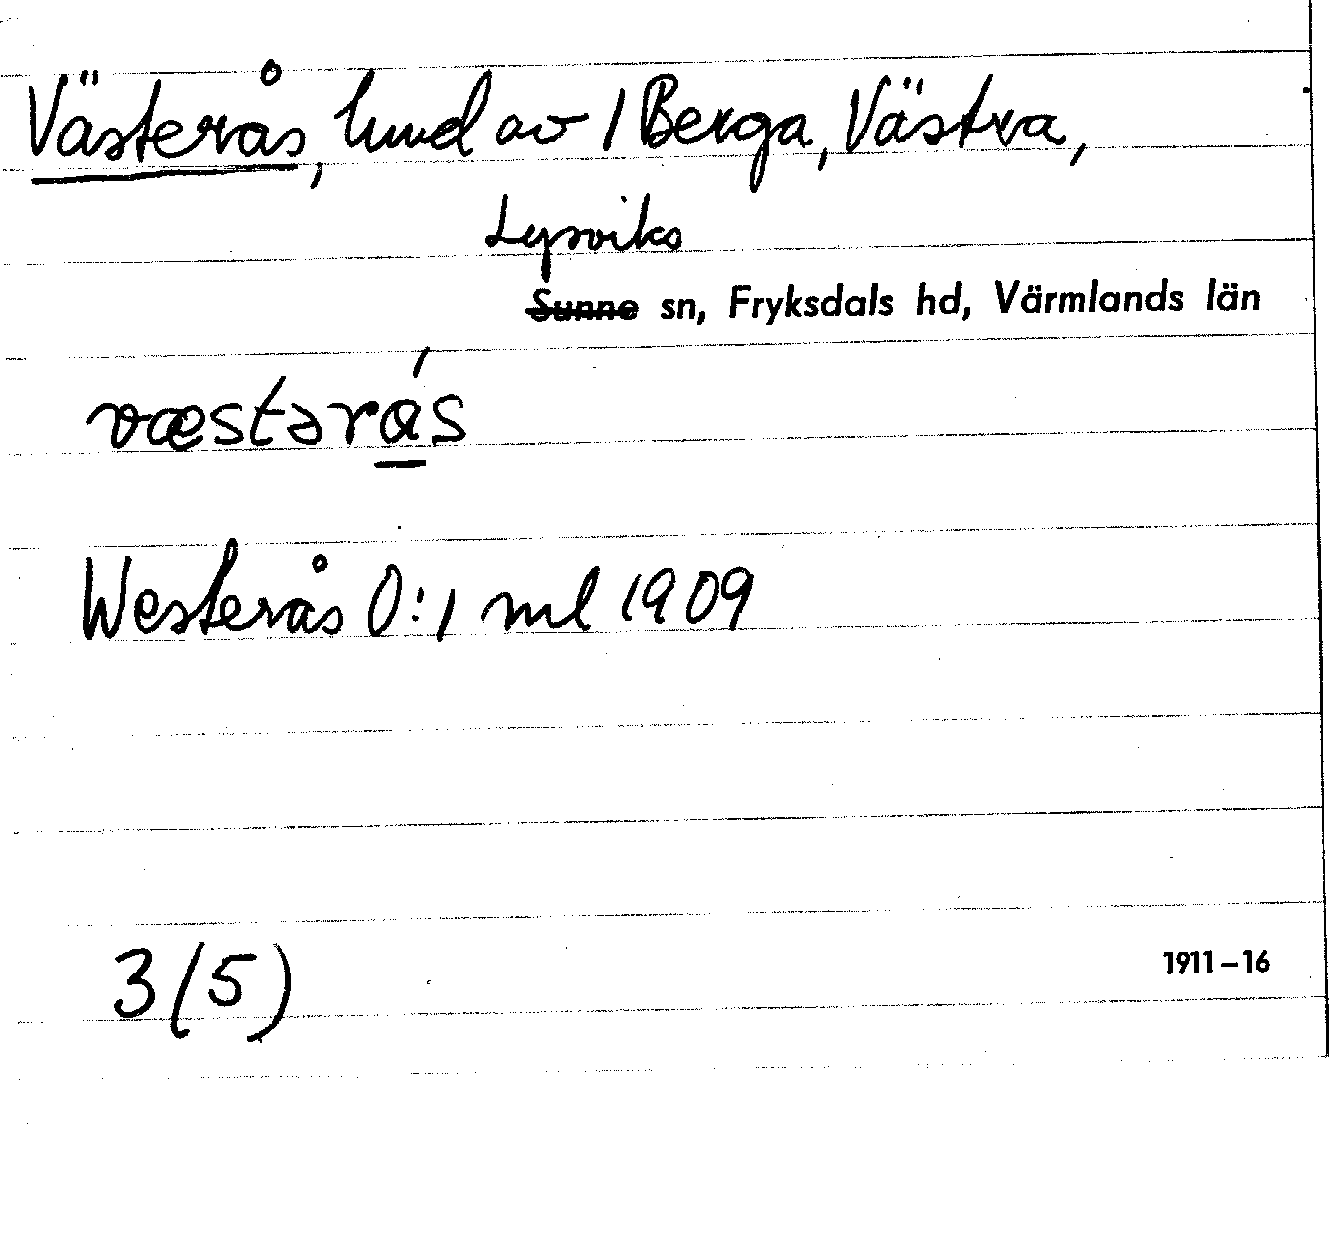 Västerås, hmd av 1 Berga, Västra,
Lysviks
Sunne sn, Fryksdals hd, Värmlands län
væstərás
Westerås 0:1 ml 1909
3(5)
1911–16